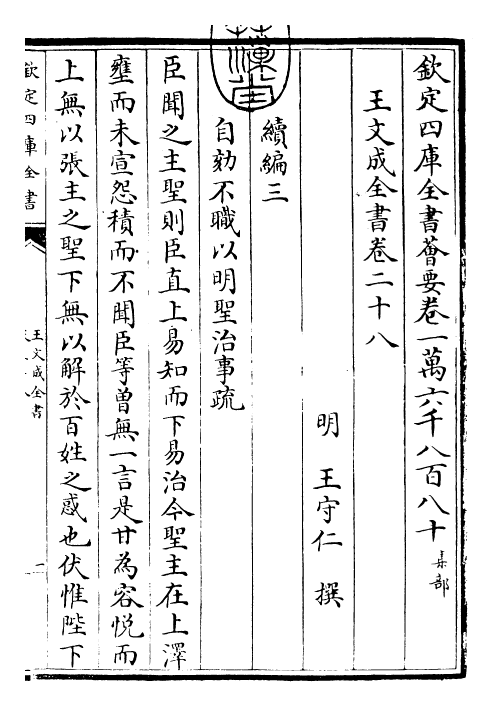 欽定四庫全書薈要卷一萬六千八百八十 集部
王文成全書卷二十八
明 王守仁 撰
續編三
自劾不職以明聖治事疏
臣聞之主聖則臣直上易知而下易治今聖主在上澤
壅而未宣怨積而不聞臣等曾無一言是甘為容悅而
上無以張主之聖下無以解於百姓之惑也伏惟陛下
欽定四庫全書
王文成全書